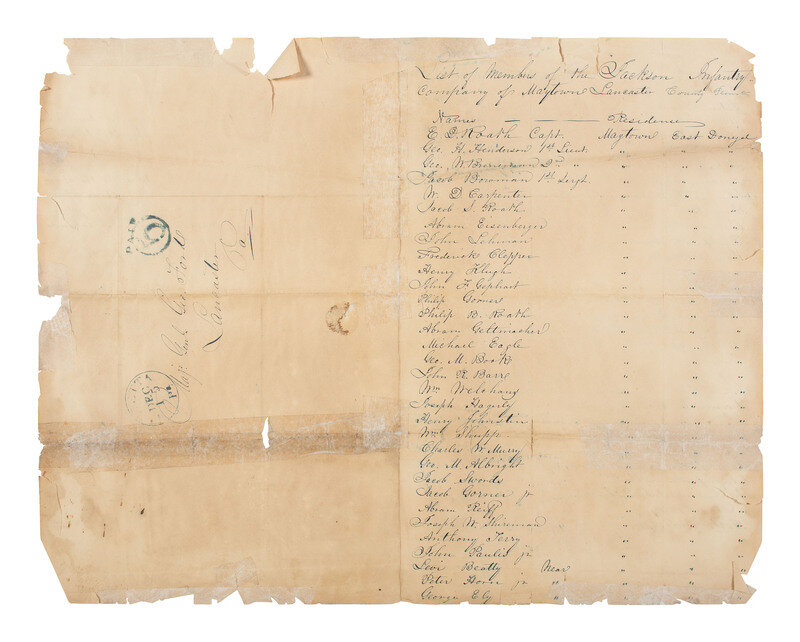 PAID
Maj. Genl. Geo Ford
Lancaster
Pa
DEC
Pa
List of Members of the Jackson Infantry
Company of Maytown Lancaster County
Names Residence
E. D. Roath Capt. Maytown East Donegal
Geo. H. Henderson 1st Lieut. " " "
Geo. W. 2nd " " " "
Jacob Bowman 1st Sergt. " " "
W. D. Carpenter " " "
Jacob S. Roath " " "
Abram Eisenberger " " "
John Lehman " " "
Frederick Clepper " " "
Henry Klugh " " "
John F. Gephart " " "
Philip Gorner " " "
Philip B. Roath " " "
Abram Geltmacher " " "
Michael Eagle " " "
Geo. M. Book " " "
John R. Barre " " "
Wm Welchans " " "
Joseph Hagerty " " "
Henry Johnstin " " "
Wm Shupp " " "
Charles W. Murry " " "
Geo. M. Albright " " "
Jacob Swords " " "
Jacob Gorner jr " " "
Abram Reiff " " "
Joseph W. Shireman " " "
Anthony Terry " " "
John Paulis jr " " "
Levi Beatty Near " " "
Peter Horn jr " " " "
George Ely " " " "